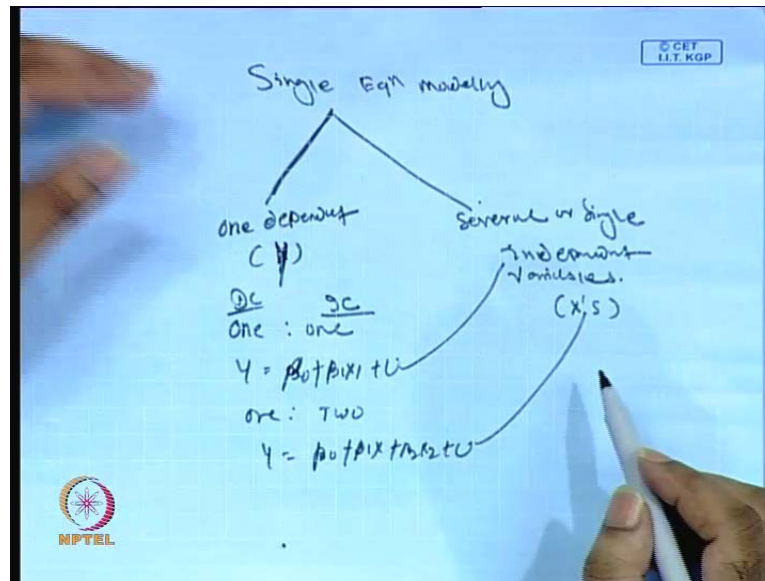 © CET
I.I.T. KGP
Single Eqn modelling
one dependent
(Y)
Several or Single
independent
variables.
(X's)
DC IC
one : one
Y = β0 + β1X1 + U
one : TWO
Y = β0 + β1X + β2X2 + U
NPTEL